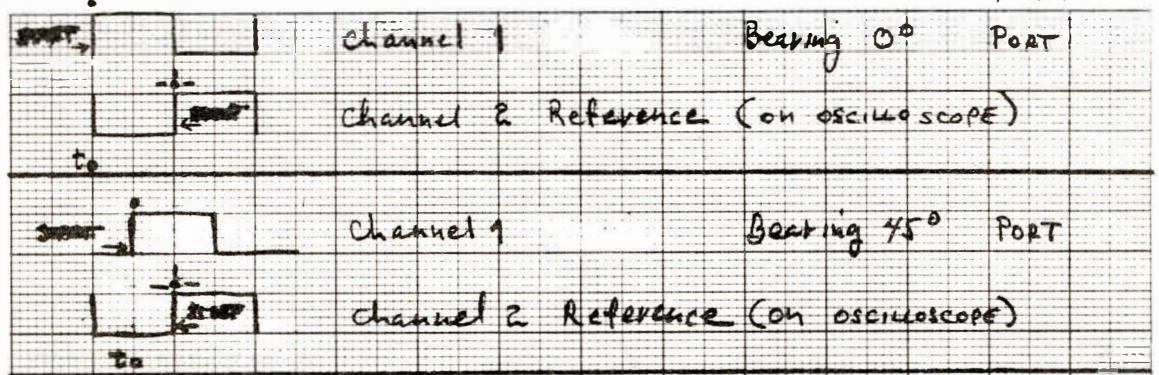 Channel 1 Bearing 0° PORT
Channel 2 Reference (on oscilloscope)
to
Channel 1 Bearing 45° PORT
Channel 2 Reference (on oscilloscope)
to